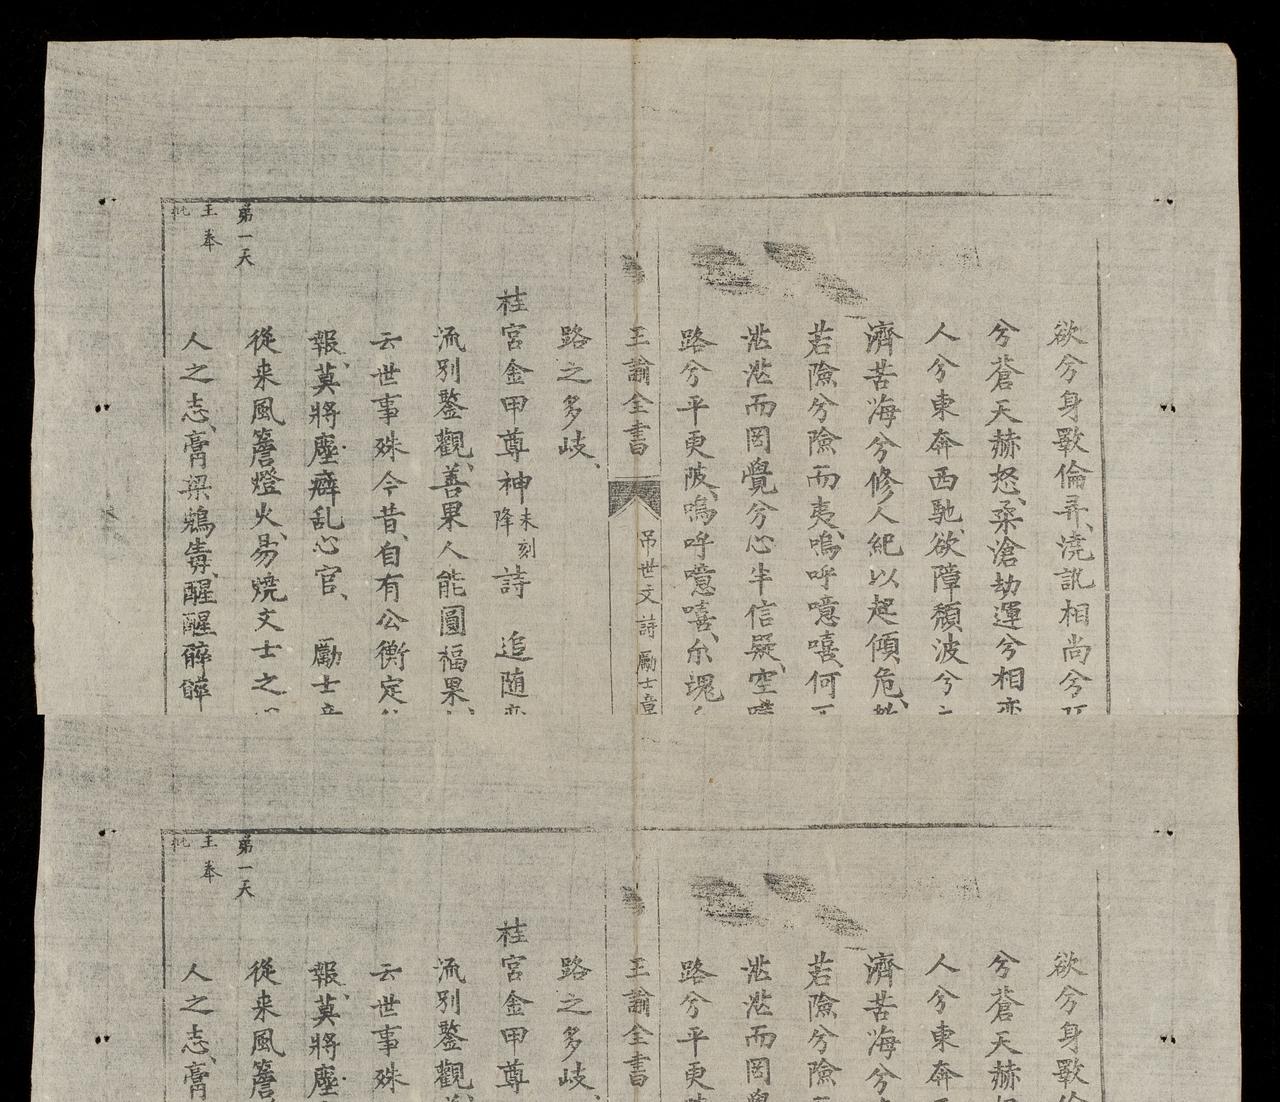 欲兮身斁倫弃、澆訛相尚兮
兮蒼天赫怒、桒滄劫運兮相
人兮東奔西馳、欲障頹波兮
濟苦海兮修人紀以起傾危、
若險兮險而夷、嗚呼噫嘻、何
茫茫而罔覺兮心半信疑、空
路兮平更陂、嗚呼噫嘻、尓塊
王諭全書
吊世文 詩 勵士章
路之多岐、
桂宮金甲尊神 未刻降 詩 追随
流別鑒觀、善果人能圓福果、
云世事殊今昔、自有公衡定
報、莫將塵癖乱心官、 勵士
從来風簷燈火、易燒文士之
人之志、膏梁鴆毒、醒醒醉醉
第一天
王奉
批
欲兮身斁
兮蒼天赫
人兮東奔
濟苦海兮
若險兮險
茫茫而罔
路兮平更
王諭全書
路之多岐、
桂宮金甲尊
流別鑒觀、
云世事殊
報、莫將塵
從来風簷
人之志、膏
第一天
王奉
批